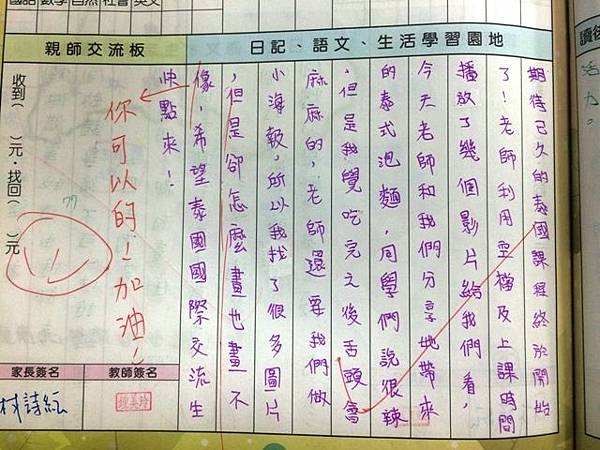 國語 數學 自然 社會 英文
日記、語文、生活學習園地
期待已久的泰國課程終於開始
了!老師利用空檔及上課時間
播放了幾個影片給我們看,
今天老師和我們分享她帶來
的泰式泡麵,同學們說很辣
,但是我覺吃完之後舌頭會
麻麻的,老師還要我們做
小海報,所以我找了很多圖片
,但是卻怎麼畫也畫不
像,希望泰國國際交流生
快點來!
親師交流板
你可以的!加油!
收到( )元,找回( )元
教師簽名
家長簽名